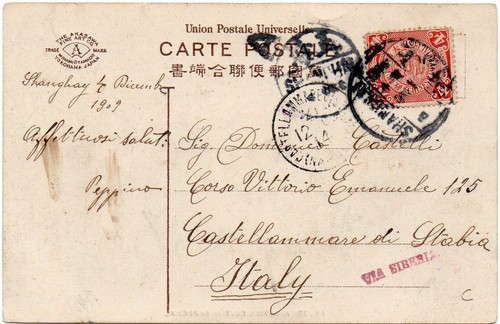 THE AKAGOWA
FINE ART CO.
TRADE MARK
YOKOHAMA JAPAN
Union Postale Universelle
CARTE POSTALE
書端合聯便郵國
Shanghay 4 Dicemb
1909
Affettuosi saluti
Peppino
Sig. Domenico Castelli
Corso Vittorio Emanuele 125
Castellammare di Stabia
Italy
VIA SIBERIA
C